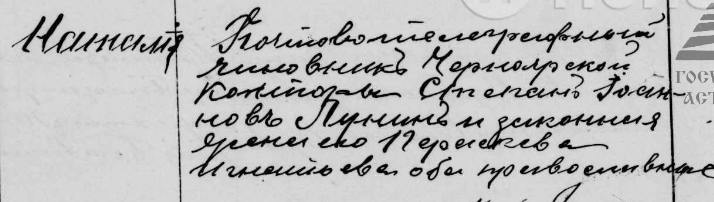 Наталія
Почтово телеграфный
чиновникъ Черноярской
конторы Стефанъ Іоан-
новъ Лунинъ и законная
жена его Параскева
Игнатьева оба православные
ГОСУ
АСТ